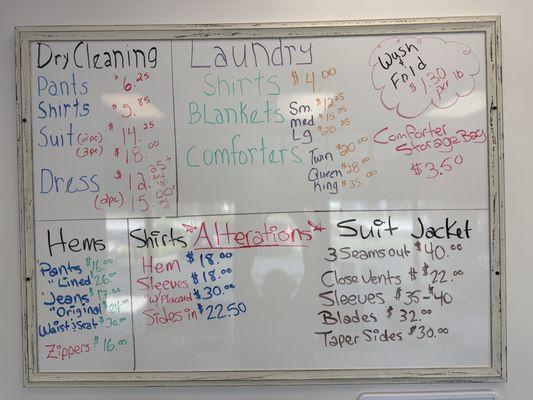 Dry Cleaning
Pants $6.25
Shirts $5.85
Suit (2pc) $14.25
(3pc) $18.00
Dress $12.25
(2pc) 15.50
Laundry
Shirts $4.00
Blankets Sm. $12.25
med $15.25
Lg $20.25
Comforters Twin $20.00
Queen $28.00
King $35.00
Wash
&
Fold
$1.30
per lb
Comforter
Storage Bag
$3.50
Hems
Pants $16.00
"Lined" 26.00
Jeans $17.00
"Original" $24.00
Waist & Seat $30.00
Zippers $16.00
*Alterations*
Shirts
Hem $18.00
Sleeves $18.00
"w/Placard $30.00
Sides in $22.50
Suit Jacket
3 Seams out $40.00
Close Vents $22.00
Sleeves $35-$40
Blades $32.00
Taper Sides $30.00